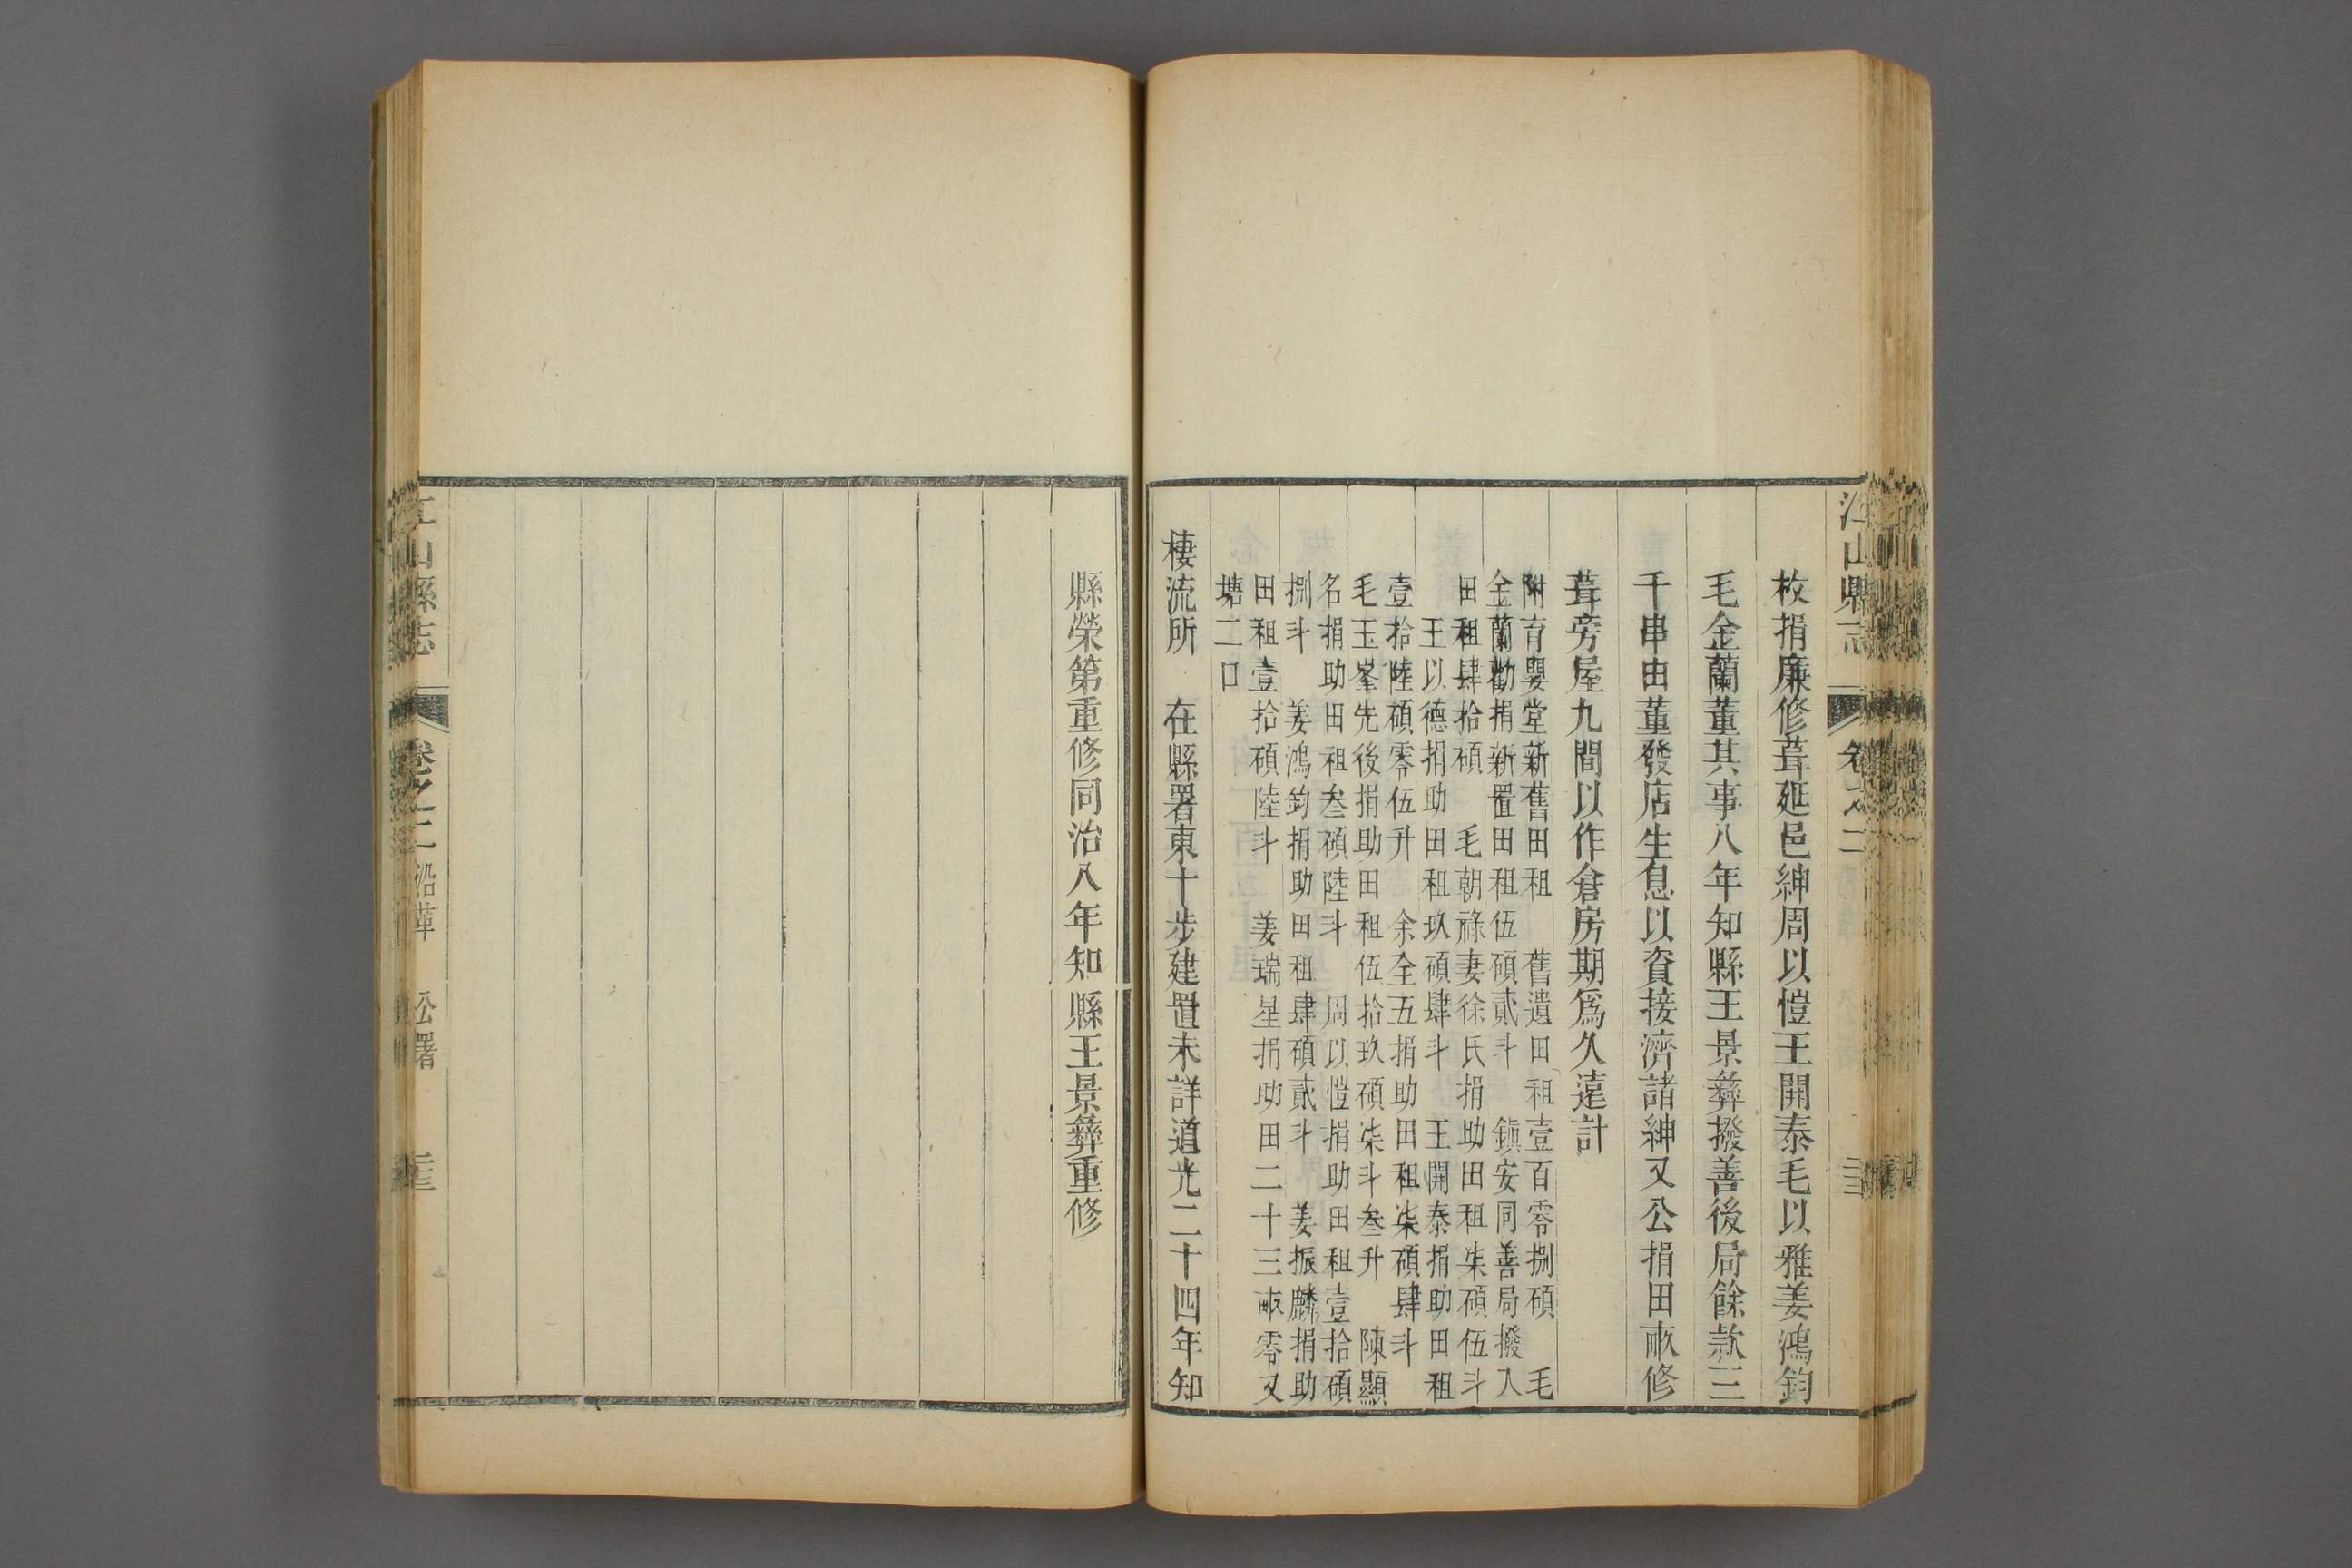 江山縣志 卷之二
枚捐廉修葺延邑紳周以愷王開泰毛以雅姜鴻鈞
毛金蘭董其事八年知縣王景彝撥善後局餘款三
千串由董發店生息以資接濟諸紳又公捐田畝修
葺旁屋九間以作倉房期爲久遠計
附育嬰堂新舊田租 舊遺田租壹百零捌碩 毛
金蘭勸捐新置田租伍碩貳斗 鎭安同善局撥入
田租肆拾碩 毛朝祿妻徐氏捐助田租柒碩伍斗
王以德捐助田租玖碩肆斗 王開泰捐助田租
壹拾陸碩零伍升 余全五捐助田租柒碩肆斗
毛玉峯先後捐助田租伍拾玖碩柒斗叁升 陳顯
名捐助田租叁碩陸斗 周以愷捐助田租壹拾碩
捌斗 姜鴻鈞捐助田租肆碩貳斗 姜振麟捐助
田租壹拾碩陸斗 姜瑞星捐助田二十三畝零又
塘二口
棲流所 在縣署東十步建置未詳道光二十四年知
縣榮第重修同治八年知縣王景彝重修
江山縣志 卷之二 沿革 公署